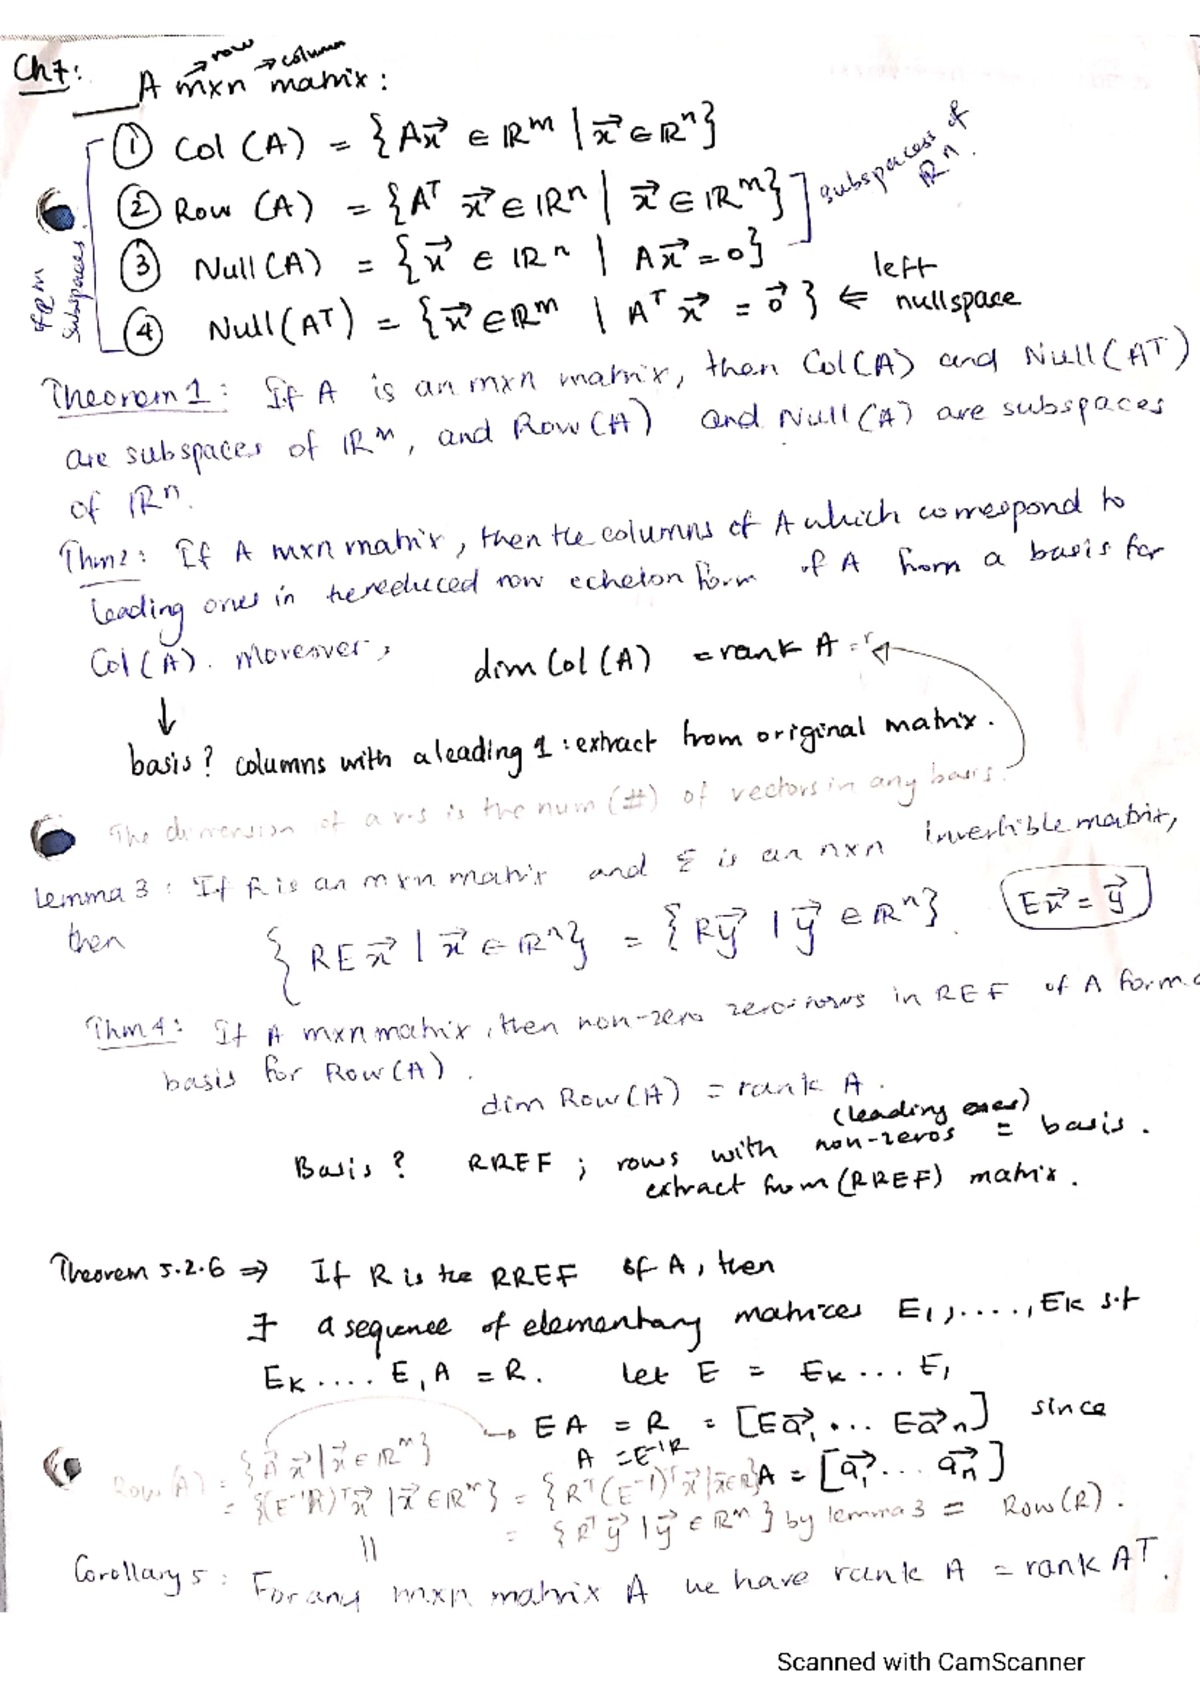 Ch7:
→row →column
A mxn matrix:
① Col (A) = {Ax⃗ ∈ ℝᵐ | x⃗ ∈ ℝⁿ}
② Row (A) = {Aᵀ x⃗ ∈ ℝⁿ | x⃗ ∈ ℝᵐ}
③ Null (A) = {x⃗ ∈ ℝⁿ | Ax⃗ = 0}
④ Null (Aᵀ) = {x⃗ ∈ ℝᵐ | Aᵀ x⃗ = 0⃗} ⇐ left nullspace
subspaces of ℝⁿ.
Subspaces of ℝᵐ
Theorem 1: If A is an mxn matrix, then Col(A) and Null(Aᵀ)
are subspaces of ℝᵐ, and Row(A) and Null(A) are subspaces
of ℝⁿ.
Thm2: If A mxn matrix, then the columns of A which correspond to
leading ones in the reduced row echelon form of A from a basis for
Col(A). Moreover, dim Col(A) = rank A = r
↓
basis? columns with a leading 1 : extract from original matrix.
The dimension of a v.s is the num (#) of vectors in any basis.
Lemma 3: If R is an mxn matrix and E is an nxn invertible matrix,
then {REx⃗ | x⃗ ∈ ℝⁿ} = {Ry⃗ | y⃗ ∈ ℝⁿ}. Ex⃗ = y⃗
Thm 4: If A mxn matrix, then non-zero zero-rows in REF of A form a
basis for Row(A).
dim Row(A) = rank A.
(leading ones)
Basis? RREF ; rows with non-zeros = basis.
extract from (RREF) matrix.
Theorem 5.2.6 ⇒ If R is the RREF of A, then
∃ a sequence of elementary matrices E₁,....,Eₖ s.t
Eₖ....E₁A = R. Let E = Eₖ...E₁
→ EA = R = [Ea⃗₁ ... Ea⃗ₙ] since
A = E⁻¹R
A = [a⃗₁ ... a⃗ₙ]
Row(A) = {A x⃗ | x⃗ ∈ ℝᵐ}
= {(E⁻¹R)ᵀx⃗ | x⃗ ∈ ℝᵐ} = {Rᵀ(E⁻¹)ᵀx⃗ | x⃗ ∈ ℝ}
= {Rᵀy⃗ | y⃗ ∈ ℝᵐ} by lemma 3 = Row(R).
Corollary 5: For any mxn matrix A we have rank A = rank Aᵀ.
Scanned with CamScanner